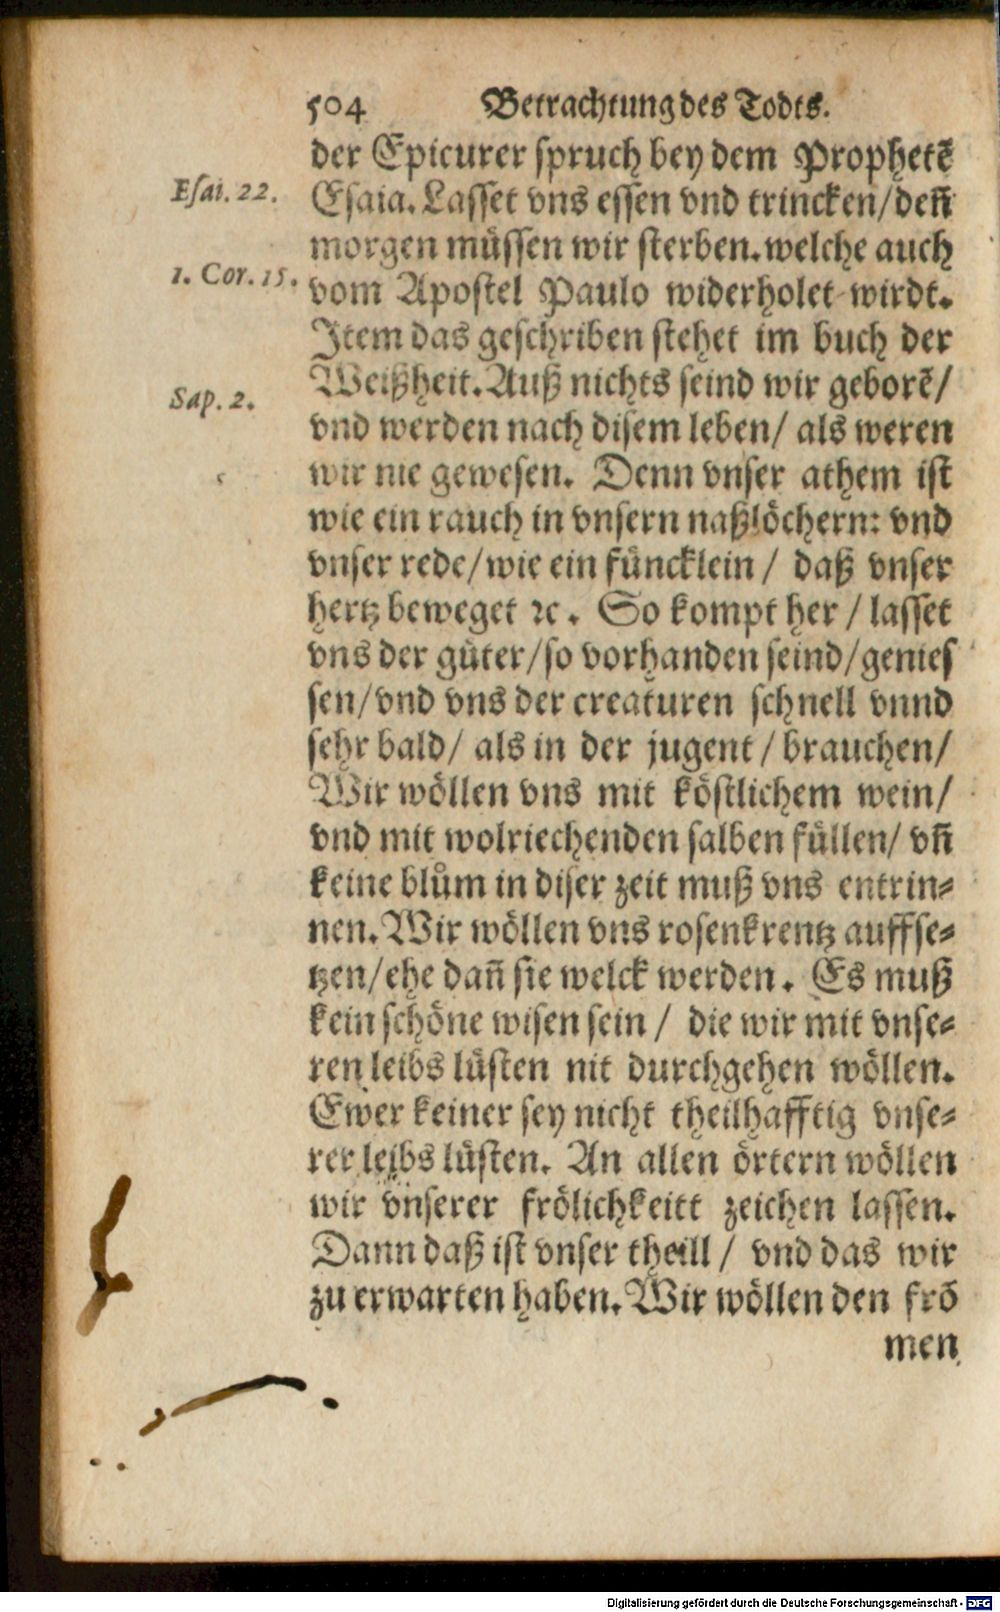 504 Betrachtung des Todts.
der Epicurer spruch bey dem Prophetē
Esai. 22.
Esaia. Lasset vns essen vnd trincken/ deñ
morgen müssen wir sterben. welche auch
1. Cor. 15.
vom Apostel Paulo widerholet wirdt.
Item das geschriben stehet im buch der
Weißheit. Auß nichts seind wir geborē/
Sap. 2.
vnd werden nach disem leben/ als weren
wir nie gewesen. Denn vnser athem ist
wie ein rauch in vnsern naßlöchern: vnd
vnser rede/ wie ein füncklein / daß vnser
hertz beweget ꝛc. So kompt her / lasset
vns der güter/ so vorhanden seind/ genies
sen/ vnd vns der creaturen schnell vnnd
sehr bald/ als in der jugent / brauchen/
Wir wöllen vns mit köstlichem wein/
vnd mit wolriechenden salben füllen/ vñ
keine blům in diser zeit muß vns entrin⸗
nen. Wir wöllen vns rosenkrentz auffse⸗
tzen/ ehe dañ sie welck werden. Es muß
kein schöne wisen sein / die wir mit vnse⸗
ren leibs lüsten nit durchgehen wöllen.
Ewer keiner sey nicht theilhafftig vnse⸗
rer leibs lüsten. An allen örtern wöllen
wir vnserer frölichkeitt zeichen lassen.
Dann daß ist vnser theill / vnd das wir
zu erwarten haben. Wir wöllen den frō
men
Digitalisierung gefördert durch die Deutsche Forschungsgemeinschaft - DFG